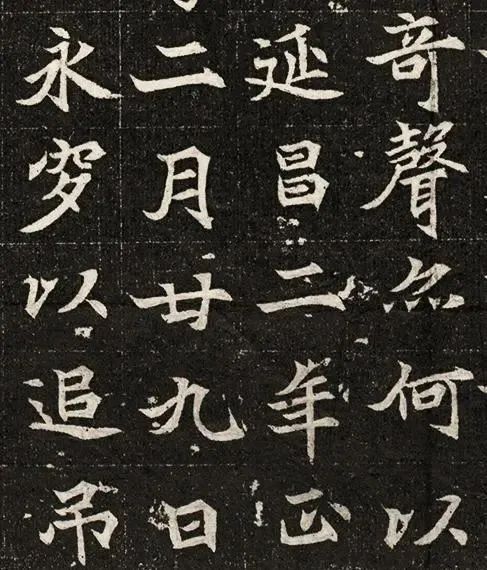 竒聲尒何以
延昌二年正
二月廿九日
永穸以追吊